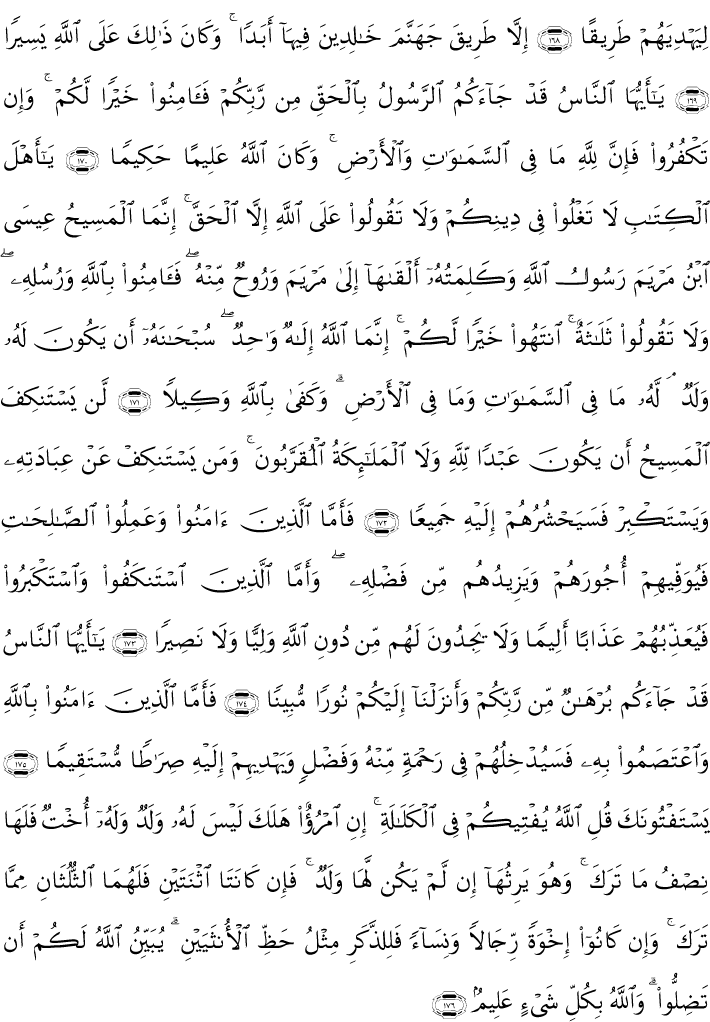 لِيَهْدِيَهُمْ طَرِيقًا ١٦٨ إِلَّا طَرِيقَ جَهَنَّمَ خَٰلِدِينَ فِيهَآ أَبَدًا ۚ وَكَانَ ذَٰلِكَ عَلَى ٱللَّهِ يَسِيرًا
١٦٩ يَٰٓأَيُّهَا ٱلنَّاسُ قَدْ جَآءَكُمُ ٱلرَّسُولُ بِٱلْحَقِّ مِن رَّبِّكُمْ فَـَٔامِنُوا۟ خَيْرًا لَّكُمْ ۚ وَإِن
تَكْفُرُوا۟ فَإِنَّ لِلَّهِ مَا فِى ٱلسَّمَٰوَٰتِ وَٱلْأَرْضِ ۚ وَكَانَ ٱللَّهُ عَلِيمًا حَكِيمًا ١٧٠ يَٰٓأَهْلَ
ٱلْكِتَٰبِ لَا تَغْلُوا۟ فِى دِينِكُمْ وَلَا تَقُولُوا۟ عَلَى ٱللَّهِ إِلَّا ٱلْحَقَّ ۚ إِنَّمَا ٱلْمَسِيحُ عِيسَى
ٱبْنُ مَرْيَمَ رَسُولُ ٱللَّهِ وَكَلِمَتُهُۥٓ أَلْقَىٰهَآ إِلَىٰ مَرْيَمَ وَرُوحٌ مِّنْهُ ۖ فَـَٔامِنُوا۟ بِٱللَّهِ وَرُسُلِهِۦ ۖ
وَلَا تَقُولُوا۟ ثَلَٰثَةٌ ۚ ٱنتَهُوا۟ خَيْرًا لَّكُمْ ۚ إِنَّمَا ٱللَّهُ إِلَٰهٌ وَٰحِدٌ ۖ سُبْحَٰنَهُۥٓ أَن يَكُونَ لَهُۥ
وَلَدٌ ۘ لَّهُۥ مَا فِى ٱلسَّمَٰوَٰتِ وَمَا فِى ٱلْأَرْضِ ۗ وَكَفَىٰ بِٱللَّهِ وَكِيلًا ١٧١ لَّن يَسْتَنكِفَ
ٱلْمَسِيحُ أَن يَكُونَ عَبْدًا لِّلَّهِ وَلَا ٱلْمَلَٰٓئِكَةُ ٱلْمُقَرَّبُونَ ۚ وَمَن يَسْتَنكِفْ عَنْ عِبَادَتِهِۦ
وَيَسْتَكْبِرْ فَسَيَحْشُرُهُمْ إِلَيْهِ جَمِيعًا ١٧٢ فَأَمَّا ٱلَّذِينَ ءَامَنُوا۟ وَعَمِلُوا۟ ٱلصَّٰلِحَٰتِ
فَيُوَفِّيهِمْ أُجُورَهُمْ وَيَزِيدُهُم مِّن فَضْلِهِۦ ۖ وَأَمَّا ٱلَّذِينَ ٱسْتَنكَفُوا۟ وَٱسْتَكْبَرُوا۟
فَيُعَذِّبُهُمْ عَذَابًا أَلِيمًا وَلَا يَجِدُونَ لَهُم مِّن دُونِ ٱللَّهِ وَلِيًّا وَلَا نَصِيرًا ١٧٣ يَٰٓأَيُّهَا ٱلنَّاسُ
قَدْ جَآءَكُم بُرْهَٰنٌ مِّن رَّبِّكُمْ وَأَنزَلْنَآ إِلَيْكُمْ نُورًا مُّبِينًا ١٧٤ فَأَمَّا ٱلَّذِينَ ءَامَنُوا۟ بِٱللَّهِ
وَٱعْتَصَمُوا۟ بِهِۦ فَسَيُدْخِلُهُمْ فِى رَحْمَةٍ مِّنْهُ وَفَضْلٍ وَيَهْدِيهِمْ إِلَيْهِ صِرَٰطًا مُّسْتَقِيمًا ١٧٥
يَسْتَفْتُونَكَ قُلِ ٱللَّهُ يُفْتِيكُمْ فِى ٱلْكَلَٰلَةِ ۚ إِنِ ٱمْرُؤٌا۟ هَلَكَ لَيْسَ لَهُۥ وَلَدٌ وَلَهُۥٓ أُخْتٌ فَلَهَا
نِصْفُ مَا تَرَكَ ۚ وَهُوَ يَرِثُهَآ إِن لَّمْ يَكُن لَّهَا وَلَدٌ ۚ فَإِن كَانَتَا ٱثْنَتَيْنِ فَلَهُمَا ٱلثُّلُثَانِ مِمَّا
تَرَكَ ۚ وَإِن كَانُوٓا۟ إِخْوَةً رِّجَالًا وَنِسَآءً فَلِلذَّكَرِ مِثْلُ حَظِّ ٱلْأُنثَيَيْنِ ۗ يُبَيِّنُ ٱللَّهُ لَكُمْ أَن
تَضِلُّوا۟ ۗ وَٱللَّهُ بِكُلِّ شَىْءٍ عَلِيمٌۢ ١٧٦